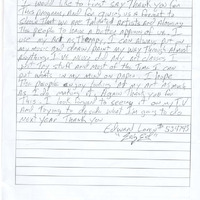 I would like to first say thank you for
this program, and for giving us a chance to
show that we are talented artists and allowing
the people to have a better opinion of us. I
use my art as therapy, I can always put on
my music and draw/paint my way through almost
anything. I've never did any art classes I
just try stuff and most of the time I can
put whats in my mind on paper. I hope
the people enjoy looking at my art as much
as I do making it. Again Thank you for
This. I look forward to seeing it on my TV
and trying to decide what I'm going to do
next year. Thank you
Edward